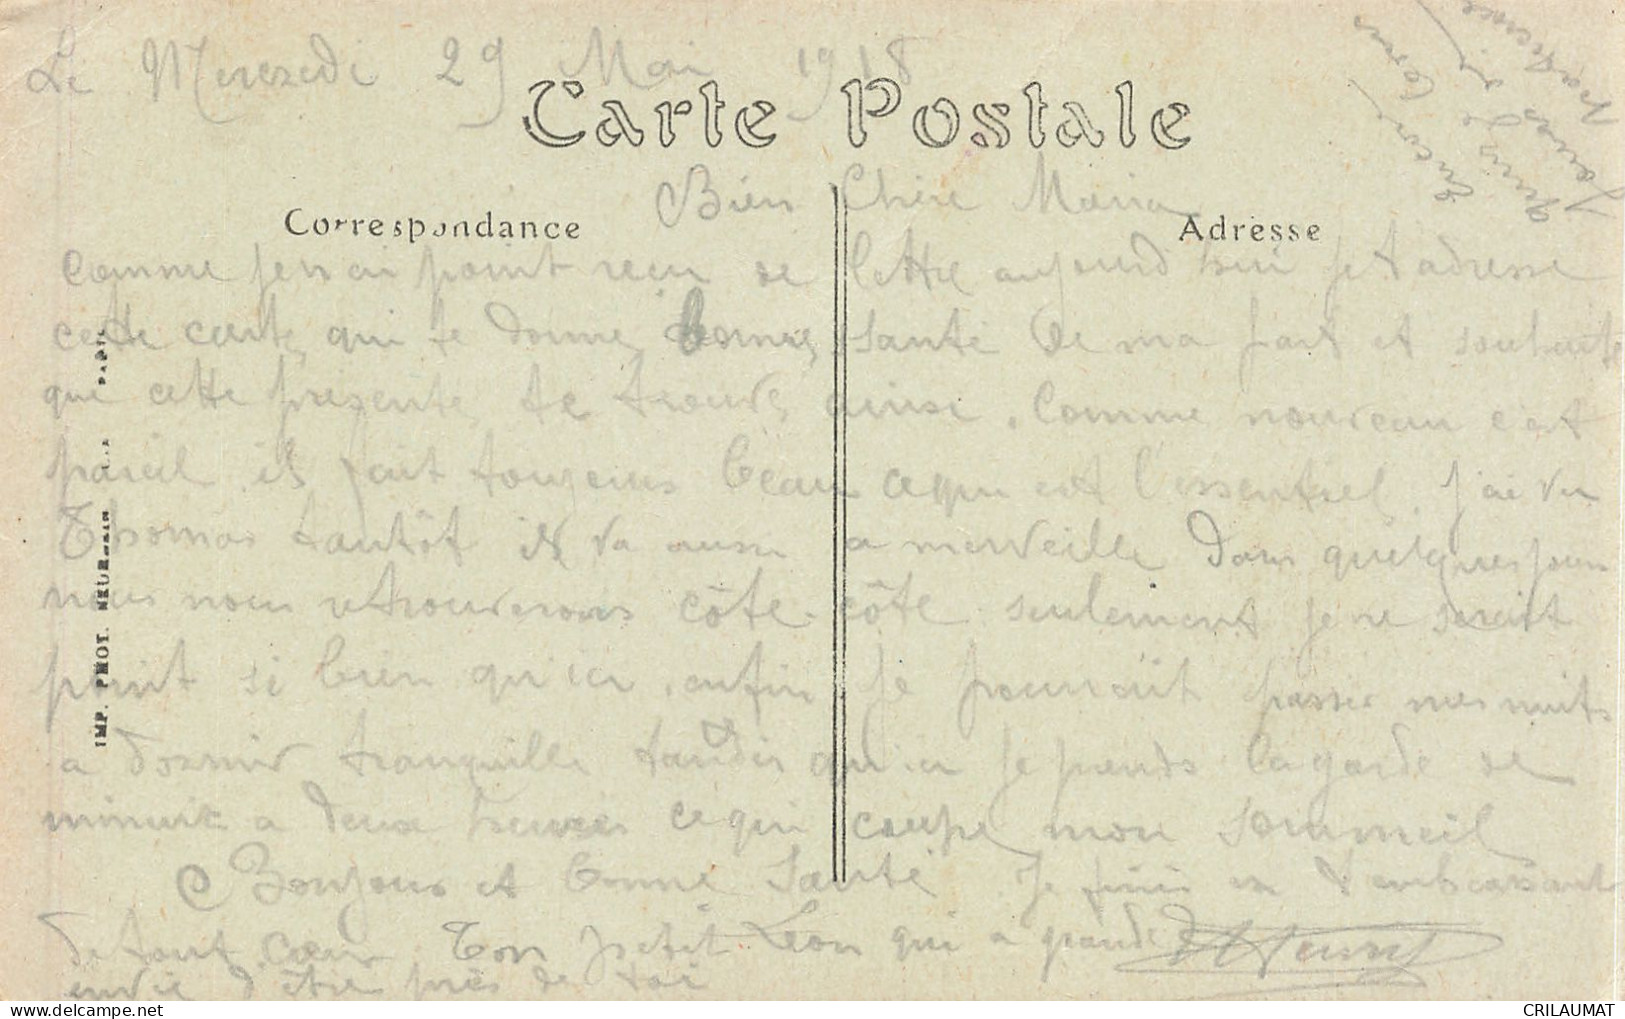 Le Merezedi 29 Mai 1918
Carte Postale
Correspondance
Adresse
Bien Chère Maria
comme je n ai point recu de lettre aujourd hui je t adresse
cette carte qui te donne bonne santé de ma part et souhaite
que cette presente te trouve ainsi. Comme nouveau c est
pareil il fait toujours beau ce qui est l'essentiel. j'ai vu
Thomas tantôt il va aussi a merveille Dans quelques jours
nous nous retrouverons côte-côte seulement je ne serait
point si bien qu'ici, enfin je pourrait passer mes nuits
a dormir tranquille tandis qu'ici je prends la garde de
minuit a deux heures ce qui coupe mon sommeil
Bonjour et bonne Santé Je finis en t embrassant
de tout cœur Ton petit Leon qui a grande
envie d'être près de toi
Encore
patience
IMP. PHOT. NEURDEIN PARIS
CRILAUMAT